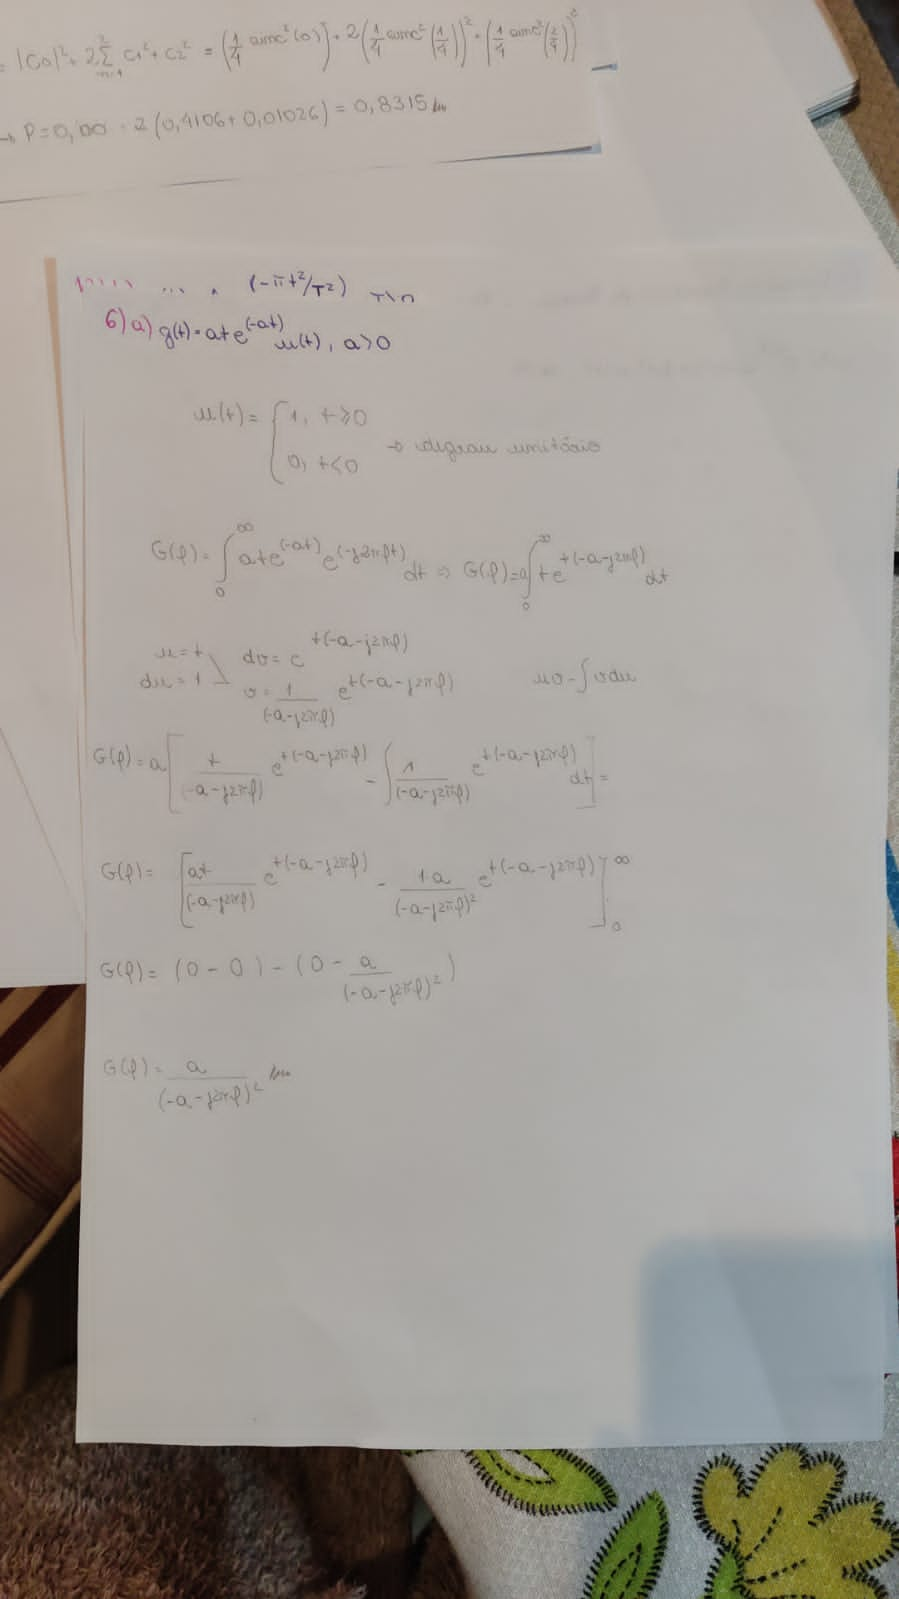 = |C0|² + 2 Σ C1² + C2² = (1/4 sinc²(0))² + 2(1/4 sinc²(1/4))² + (1/4 sinc²(2/4))²
→ P = 0,00 · 2 (0,4106 + 0,01026) = 0,8315
(-πt²/T²)
6) a) g(t) = ate^(-at) u(t), a>0
u(t) = { 1, t≥0
0, t<0 → degrau unitário
G(f) = ∫₀^∞ ate^(-at) e^(-j2πft) dt ⇒ G(f) = a∫₀^∞ te^t(-a-j2πf) dt
u = t dv = e^t(-a-j2πf)
du = 1 v = 1/(-a-j2πf) e^t(-a-j2πf) uv - ∫vdu
G(f) = a[t/(-a-j2πf) e^t(-a-j2πf) - ∫ 1/(-a-j2πf) e^t(-a-j2πf) dt] =
G(f) = [at/(-a-j2πf) e^t(-a-j2πf) - 1a/(-a-j2πf)² e^t(-a-j2πf)]₀^∞
G(f) = (0 - 0) - (0 - a/(-a-j2πf)²)
G(f) = a/(-a-j2πf)²